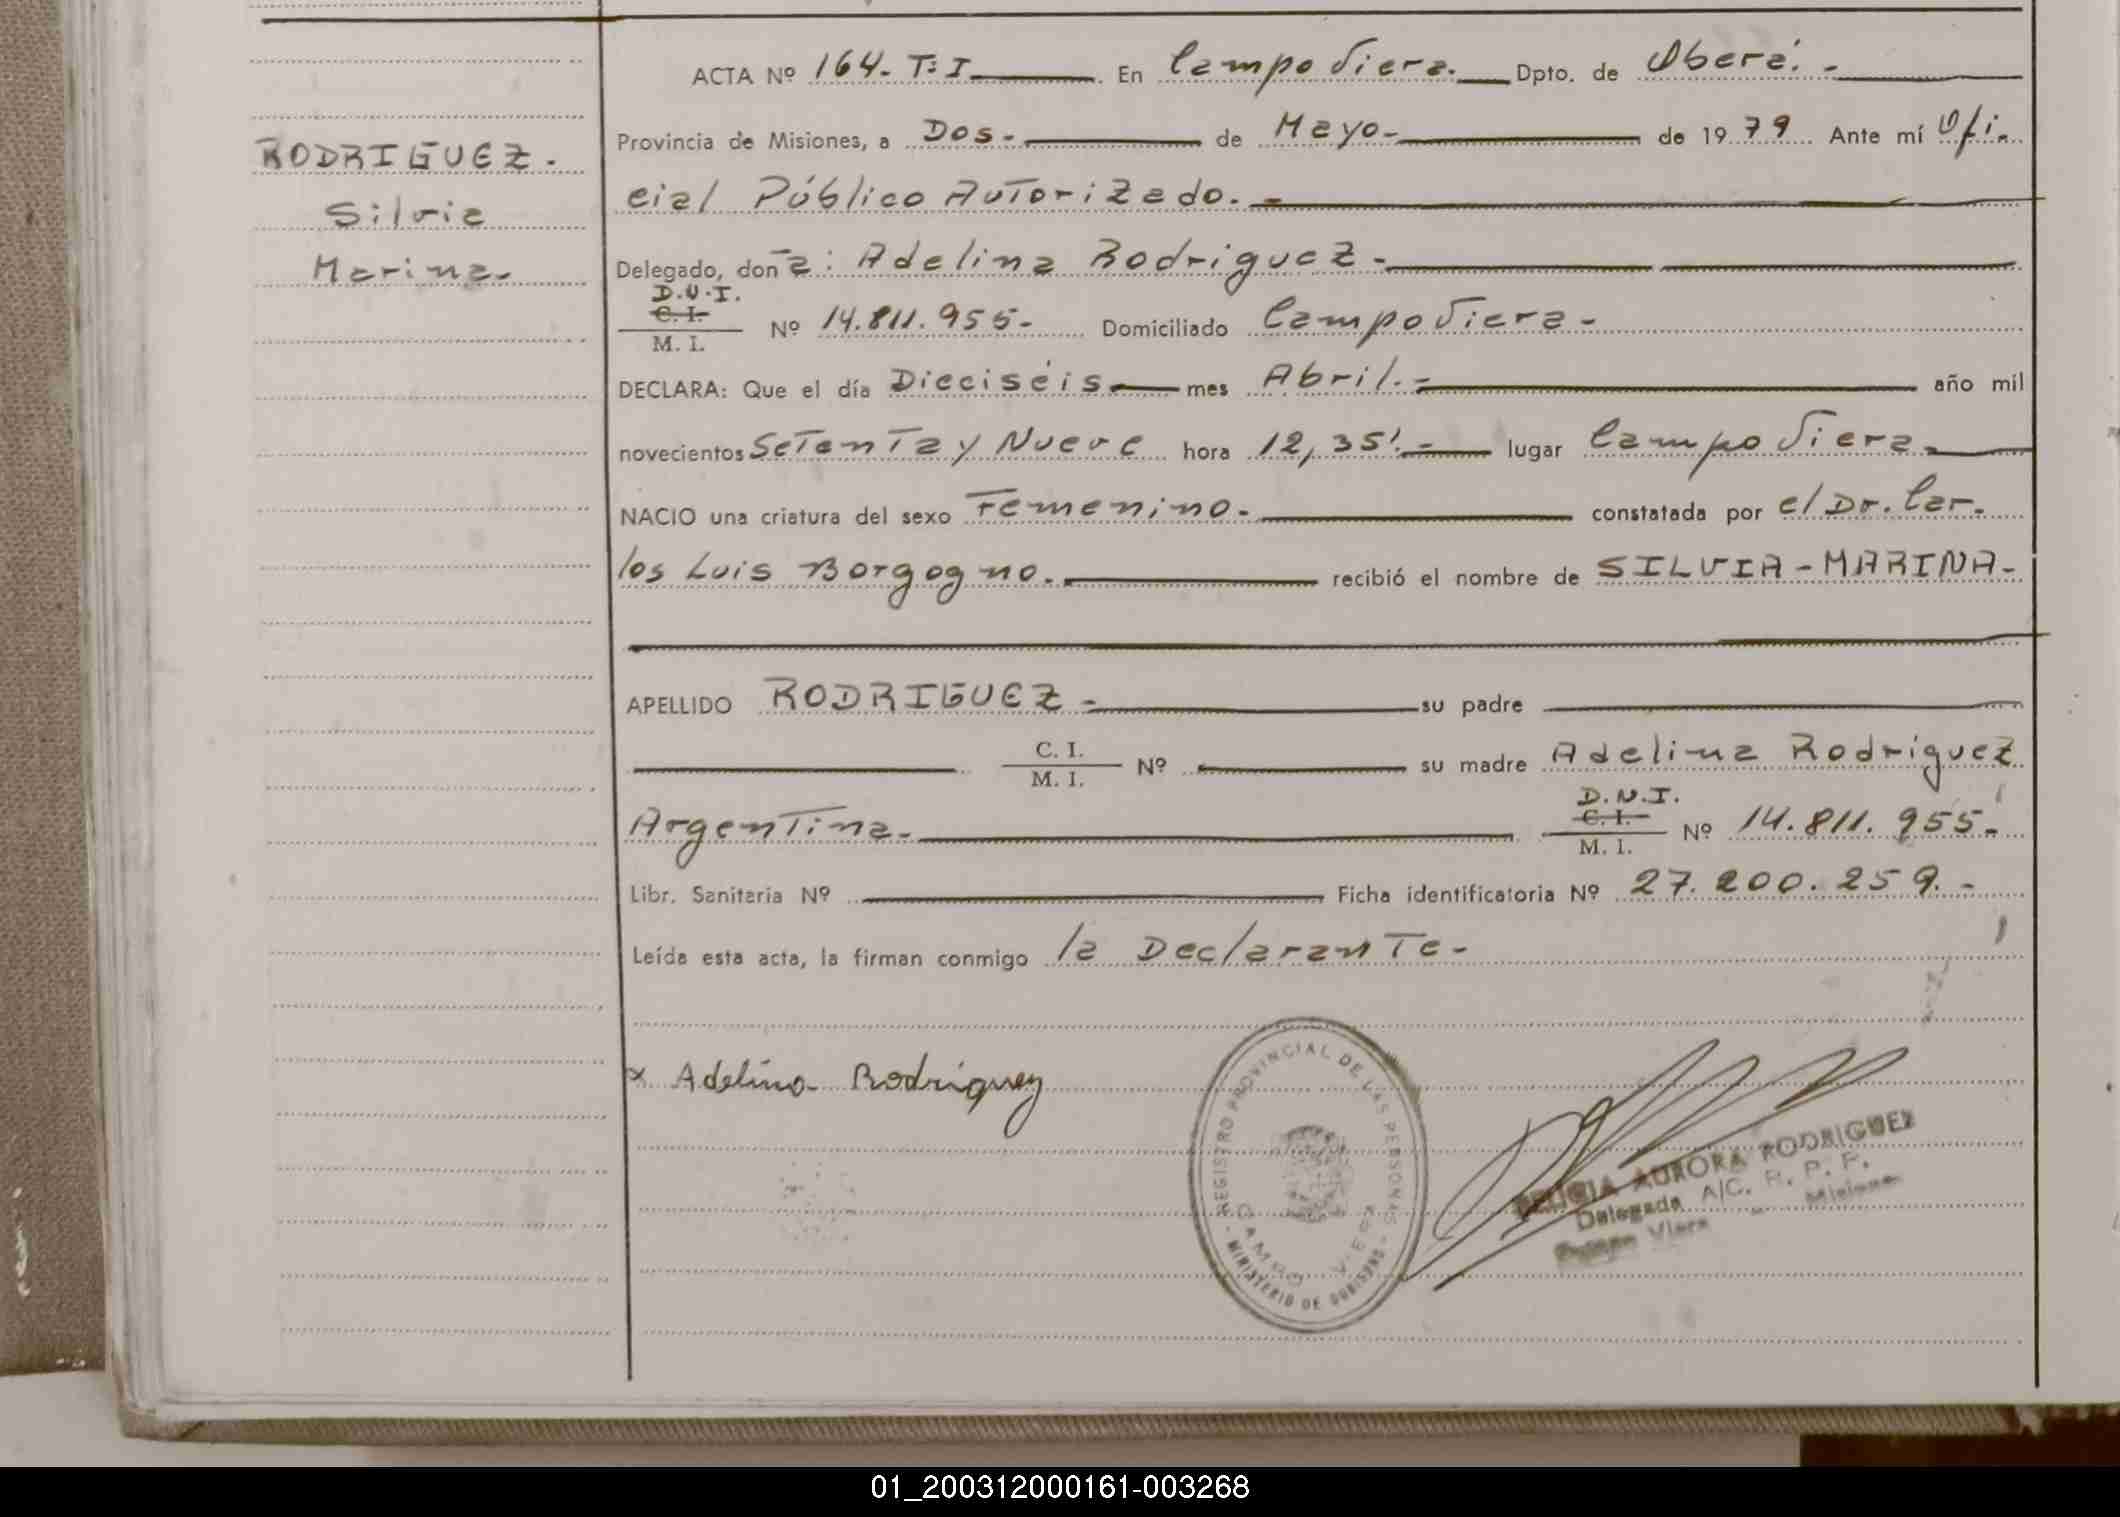 RODRIGUEZ.
Silvia
Marina.
ACTA Nº 164. T: I. En Campo Viera. Dpto. de Oberá.
Provincia de Misiones, a Dos. de Mayo de 1979 Ante mí Ofi.
cial Público Autorizado.
Delegado, don ̄a: Adelina Rodriguez
D.N.I.
C. I.
M. I. Nº 14.811.955 Domiciliado Campo Viera
DECLARA: Que el día Dieciséis mes Abril. año mil
novecientos Setenta y Nueve hora 12,35'. lugar Campo Viera.
NACIO una criatura del sexo Femenino. constatada por el Dr. Car.
los Luis Borgogno. recibió el nombre de SILVIA-MARINA-
APELLIDO RODRIGUEZ su padre
C. I.
M. I. Nº su madre Adelina Rodriguez
Argentina. D.N.I.
C. I.
M. I. Nº 14.811.955
Libr. Sanitaria Nº Ficha identificatoria Nº 27.200.259.
Leída esta acta, la firman conmigo la Declarante
x Adelina Rodriguez
REGISTRO PROVINCIAL DE LAS PERSONAS
CAMPO VIERA
MINISTERIO DE GOBIERNO
AURORA RODRIGUEZ
Delegada A/C. R. P. P.
Campo Viera - Misiones
01_200312000161-003268